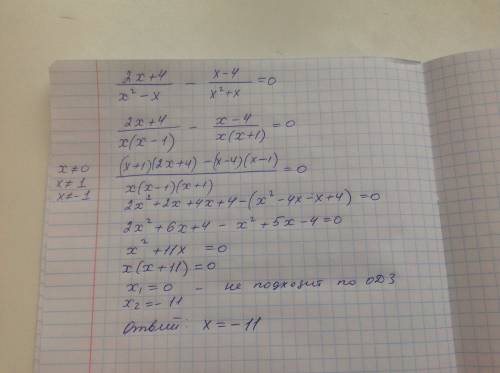 (2x+4)/(x²-x) - (x-4)/(x²+x) = 0
(2x+4)/(x(x-1)) - (x-4)/(x(x+1)) = 0
x≠0
x≠1
x≠-1
((x+1)(2x+4) - (x-4)(x-1))/(x(x-1)(x+1)) = 0
2x²+2x+4x+4-(x²-4x-x+4)=0
2x²+6x+4 - x²+5x-4=0
x²+11x =0
x(x+11)=0
x₁=0 - не подходит по ОДЗ
x₂=-11
Ответ: x=-11